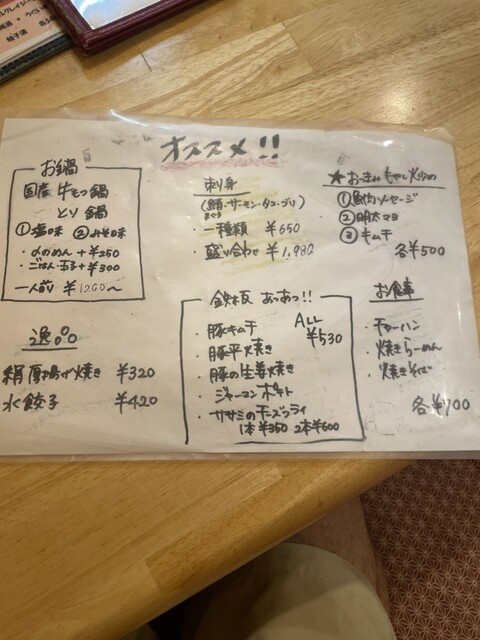 オススメ!!
お鍋
国産 牛もつ鍋
とり鍋
①塩味 ②みそ味
・〆のめん +¥250
・ごはん・玉子 +¥300
一人前 ¥1200〜
逸品
絹厚揚げ焼き ¥320
水餃子 ¥420
刺身
(鮪・サーモン・タコ・ブリ)
まぐろ
・一種類 ¥650
・盛り合わせ ¥1,980
鉄板 あつあつ!!
ALL
¥530
・豚キムチ
・豚平焼き
・豚の生姜焼き
・ジャーマンポテト
・ササミのチーズフライ
1本¥350 2本¥600
★おつまみもやし炒め
①魚肉ソーセージ
②明太マヨ
③キムチ
各¥500
お食事
・チャーハン
・焼きらーめん
・焼きそば
各¥700
柚子酒